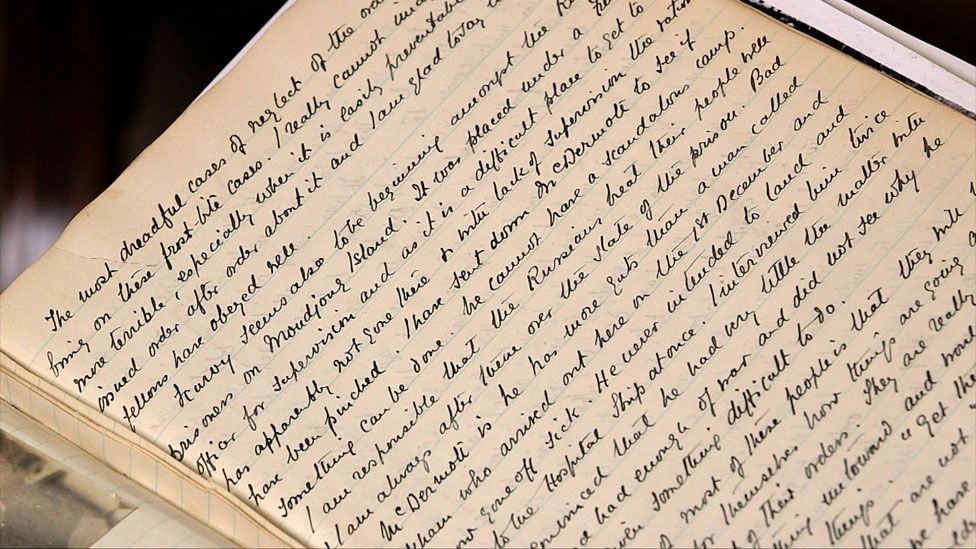 The most dreadful cases of neglect of the
bring on these frost-bite cases. I really cannot
more terrible, especially when it is easily preventable
order after order about it and I am glad today
fellows have obeyed well.
Scurvy seems also to be beginning amongst the
prisoners on Moudjoug Island. It was placed under a
officer for supervision and as it is a difficult place to get to
has apparently not gone there & into lack of supervision the ration
have been pinched. I have sent down McDermott to see if
something can be done. We cannot have a scandalous camp.
I am responsible that the Russians treat their people well
I am always after them over the state of the prison. Bad
McDermott is he has more guts than a man called
who arrived out here on the 1st December and
now gone off sick. He never intended to land and
to the Hospital Ship at once. I interviewed him twice
convinced that he had very little the matter with
had enough of war and did not see why he
something difficult to do.
most of these people is that they
themselves how things are going
of their orders. They are really
thing untoward and
things. "Get the
that are not
have